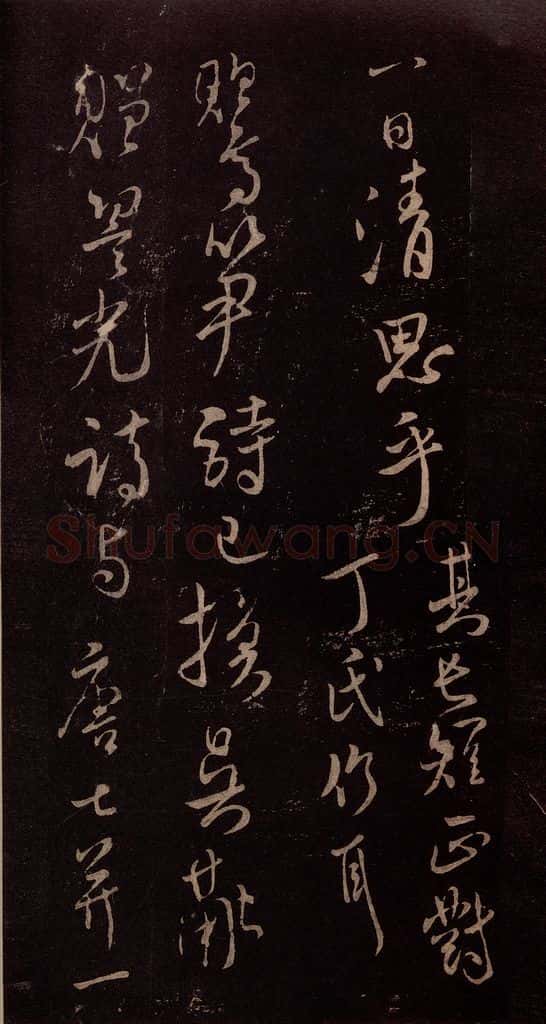 一日清思乎
其長短正對
丁氏耳
詩已換吳融
贈䛒光詩与唐七并一
Shufawang.CN